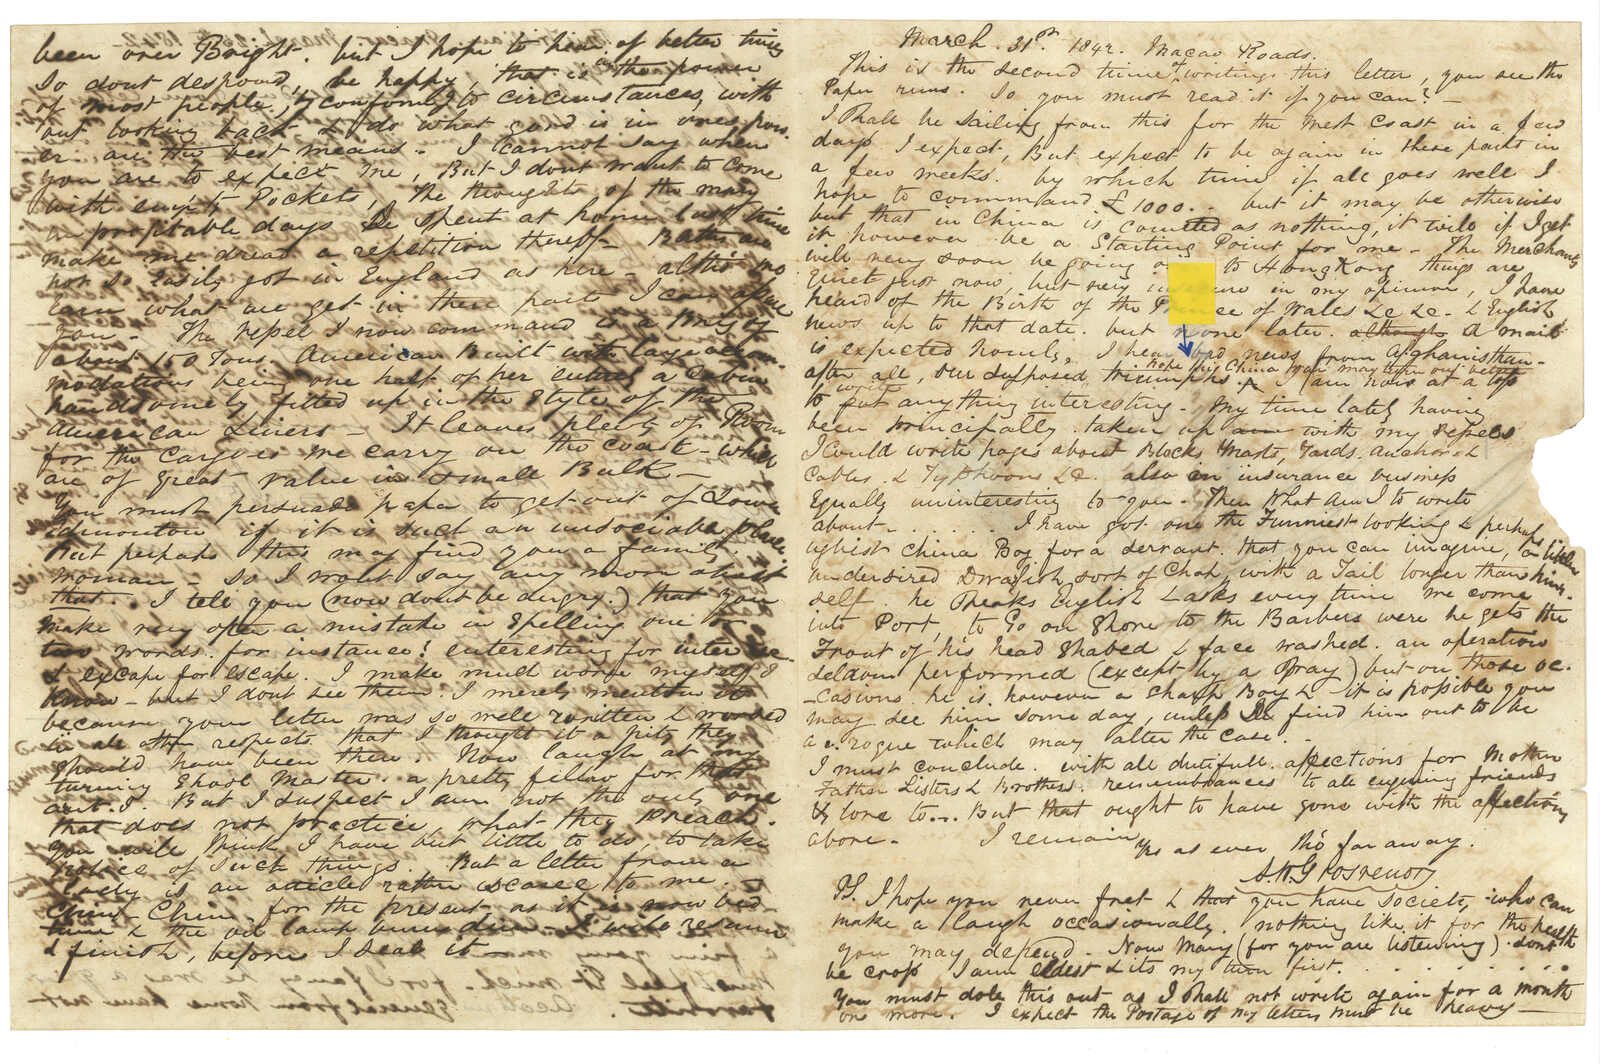 been over Bright. but I hope to hear of better times
So dont despond, be happy, that is in the power
of most people, by conformity to circumstances, with
out looking back & do what good is in ones pow
er. are the best means. I cannot say when
you are to expect me, But I dont want to come
with empty Pockets, The thoughts of the many
unprofitable days I spent at home last time
make me dread a repetition thereof - Baths are
not so easily got in England as here - altho' no
earn what we get in these parts I can assure
you - The vessel I now command is a Brig of
about 150 Tons. American Built with large accom
modations being one half of her entirely a Cabin
handsomely fitted up in the Style of the
American Liners - It leaves plenty of Room
for the Cargoes we carry on the coast - which
are of great value in small Bulk -
You must persuade papa to get out of Lower
Edmonton if it is such an unsociable place
But perhaps this may find you a family
woman - so I wont say any more about
that. I tell you (now dont be angry.) that you
make very often a mistake in Spelling one or
two words. for instance: enteresting for interes
& excape for escape. I make much worse myself I
know - but I dont see them. I merely mention it
because your letter was so well written & worded
in all other respects that I thought it a pity they
should have been there. Now laugh at my
turning Shool Master. a pretty fellow for that
ant I. But I suspect I am not the only one
that does not practice what they Preach.
you will think I have but little to do, to take
notice of such things. But a letter from a
Lady is an article rather scarce to me. -
Chin-Chin, for the present as it is now bed
time & the oil lamp burns dim - I will resume
& finish, before I seal it -
March. 31st. 1842. Macao Roads.
This is the second time of writing this letter, you see the
Paper runs. So you must read it if you can? -
I Shall be Sailing from this for the West Coast in a few
days I expect, But expect to be again in these parts in
a few weeks. by which time if all goes well I
hope to command £1000. - but it may be otherwise
but that in China is counted as nothing, it will if I get
it however be a Starting Point for me - The Merchants
will very soon be going to HongKong things are
quiet just now, but very in my opinion, I have
heard of the Birth of the of Wales &c &c. & English
news up to that date. but none later. although A mail
is expected hourly, I hear bad news from Afghanisthan -
after all, our supposed triumphs. I hope this China war may turn out better
I am now at a loss
to write anything interesting - My time lately having
been principally taken up with my vessels
I Could write pages about Blocks Masts, Yards. anchors &
Cables. & Typhoons &c. also on insurance business
Equally uninteresting to you - Then What Am I to write
about - . . . . . I have got one the Funniest looking & perhaps
ugliest China Boy for a servant. that you can imagine, a little
undersized Dwarfish sort of Chap, with a Tail longer than him-
self he Speaks English & asks every time we come
into Port, to Go on Shore to the Barbers were he gets the
Front of his head Shaved & face washed. an operation
seldom performed (except by a Spray) but on those oc-
-casions he is. however a Sharp Boy & it is possible you
may see him some day, unless I find him out to be
a rogue which may alter the case. -
I must conclude. with all dutifull affections for Mother
Father Sisters & Brothers. remembrances to all enquiring friends
& love to... But that ought to have gone with the affections
above - I remain
Yrs as ever tho' far away.
A.W. Grosvenor
P.S. I hope you never fret & that you have Society who can
make a laugh occasionally. nothing like it for the health
you may depend. Now Mary (for you are listening) dont
be cross I am eldest & its my turn first. . . . . . . .
You must dole this out as I Shall not write again for a month
or more. I expect the Postage of my letters must be heavy -